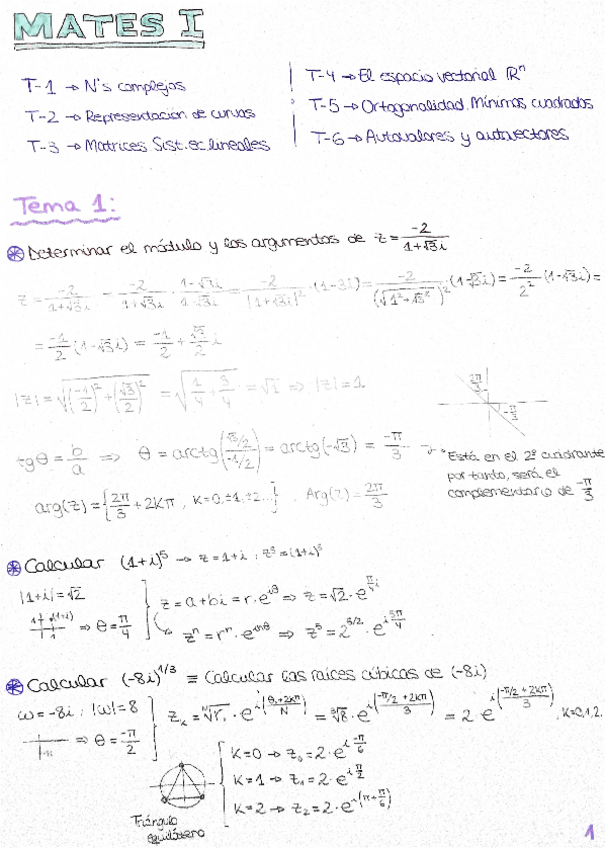 MATES I
T-1 → Nº's complejos
T-2 → Representación de curvas
T-3 → Matrices. Sist. ec. lineales
T-4 → El espacio vectorial ℝⁿ
T-5 → Ortogonalidad. Mínimos cuadrados
T-6 → Autovalores y autovectores
Tema 1:
⊛ Determinar el módulo y los argumentos de z = -2/(1+√3i)
z = -2/(1+√3i) = -2/(1+√3i) · (1-√3i)/(1-√3i) = -2/|1+√3i|² · (1-√3i) = -2/(√(1²+√3²))² (1-√3i) = -2/2² (1-√3i) =
= -1/2 (1-√3i) = -1/2 + √3/2 i
|z| = √((-1/2)² + (√3/2)²) = √(1/4 + 3/4) = √1 ⇒ |z| = 1
2π/3
-π/3
tgθ = b/a ⇒ θ = arctg((√3/2)/(-1/2)) = arctg(-√3) = -π/3 →
* Está en el 2º cuadrante
por tanto, será el
complementario de -π/3
arg(z) = {2π/3 + 2Kπ, K=0,±1,±2...}. Arg(z) = 2π/3
⊛ Calcular (1+i)⁵ → z = 1+i ; z⁵ = (1+i)⁵
|1+i| = √2
(1+i) ⇒ θ = π/4
z = a+bi = r·e^(iθ) ⇒ z = √2·e^(π/4 i)
zⁿ = rⁿ·e^(inθ) ⇒ z⁵ = 2^(5/2)·e^(i 5π/4)
⊛ Calcular (-8i)^(1/3) ≡ Calcular las raíces cúbicas de (-8i)
ω = -8i ; |ω| = 8
⇒ θ = -π/2
z_k = ᴺ√r · e^(i(θ+2Kπ)/N) = ³√8 · e^(i(-π/2+2Kπ)/3) = 2·e^(i(-π/2+2Kπ)/3), K=0,1,2.
K=0 → z₀ = 2·e^(i -π/6)
K=1 → z₁ = 2·e^(i π/2)
K=2 → z₂ = 2·e^(i(π+π/6))
Triángulo
equilátero
1